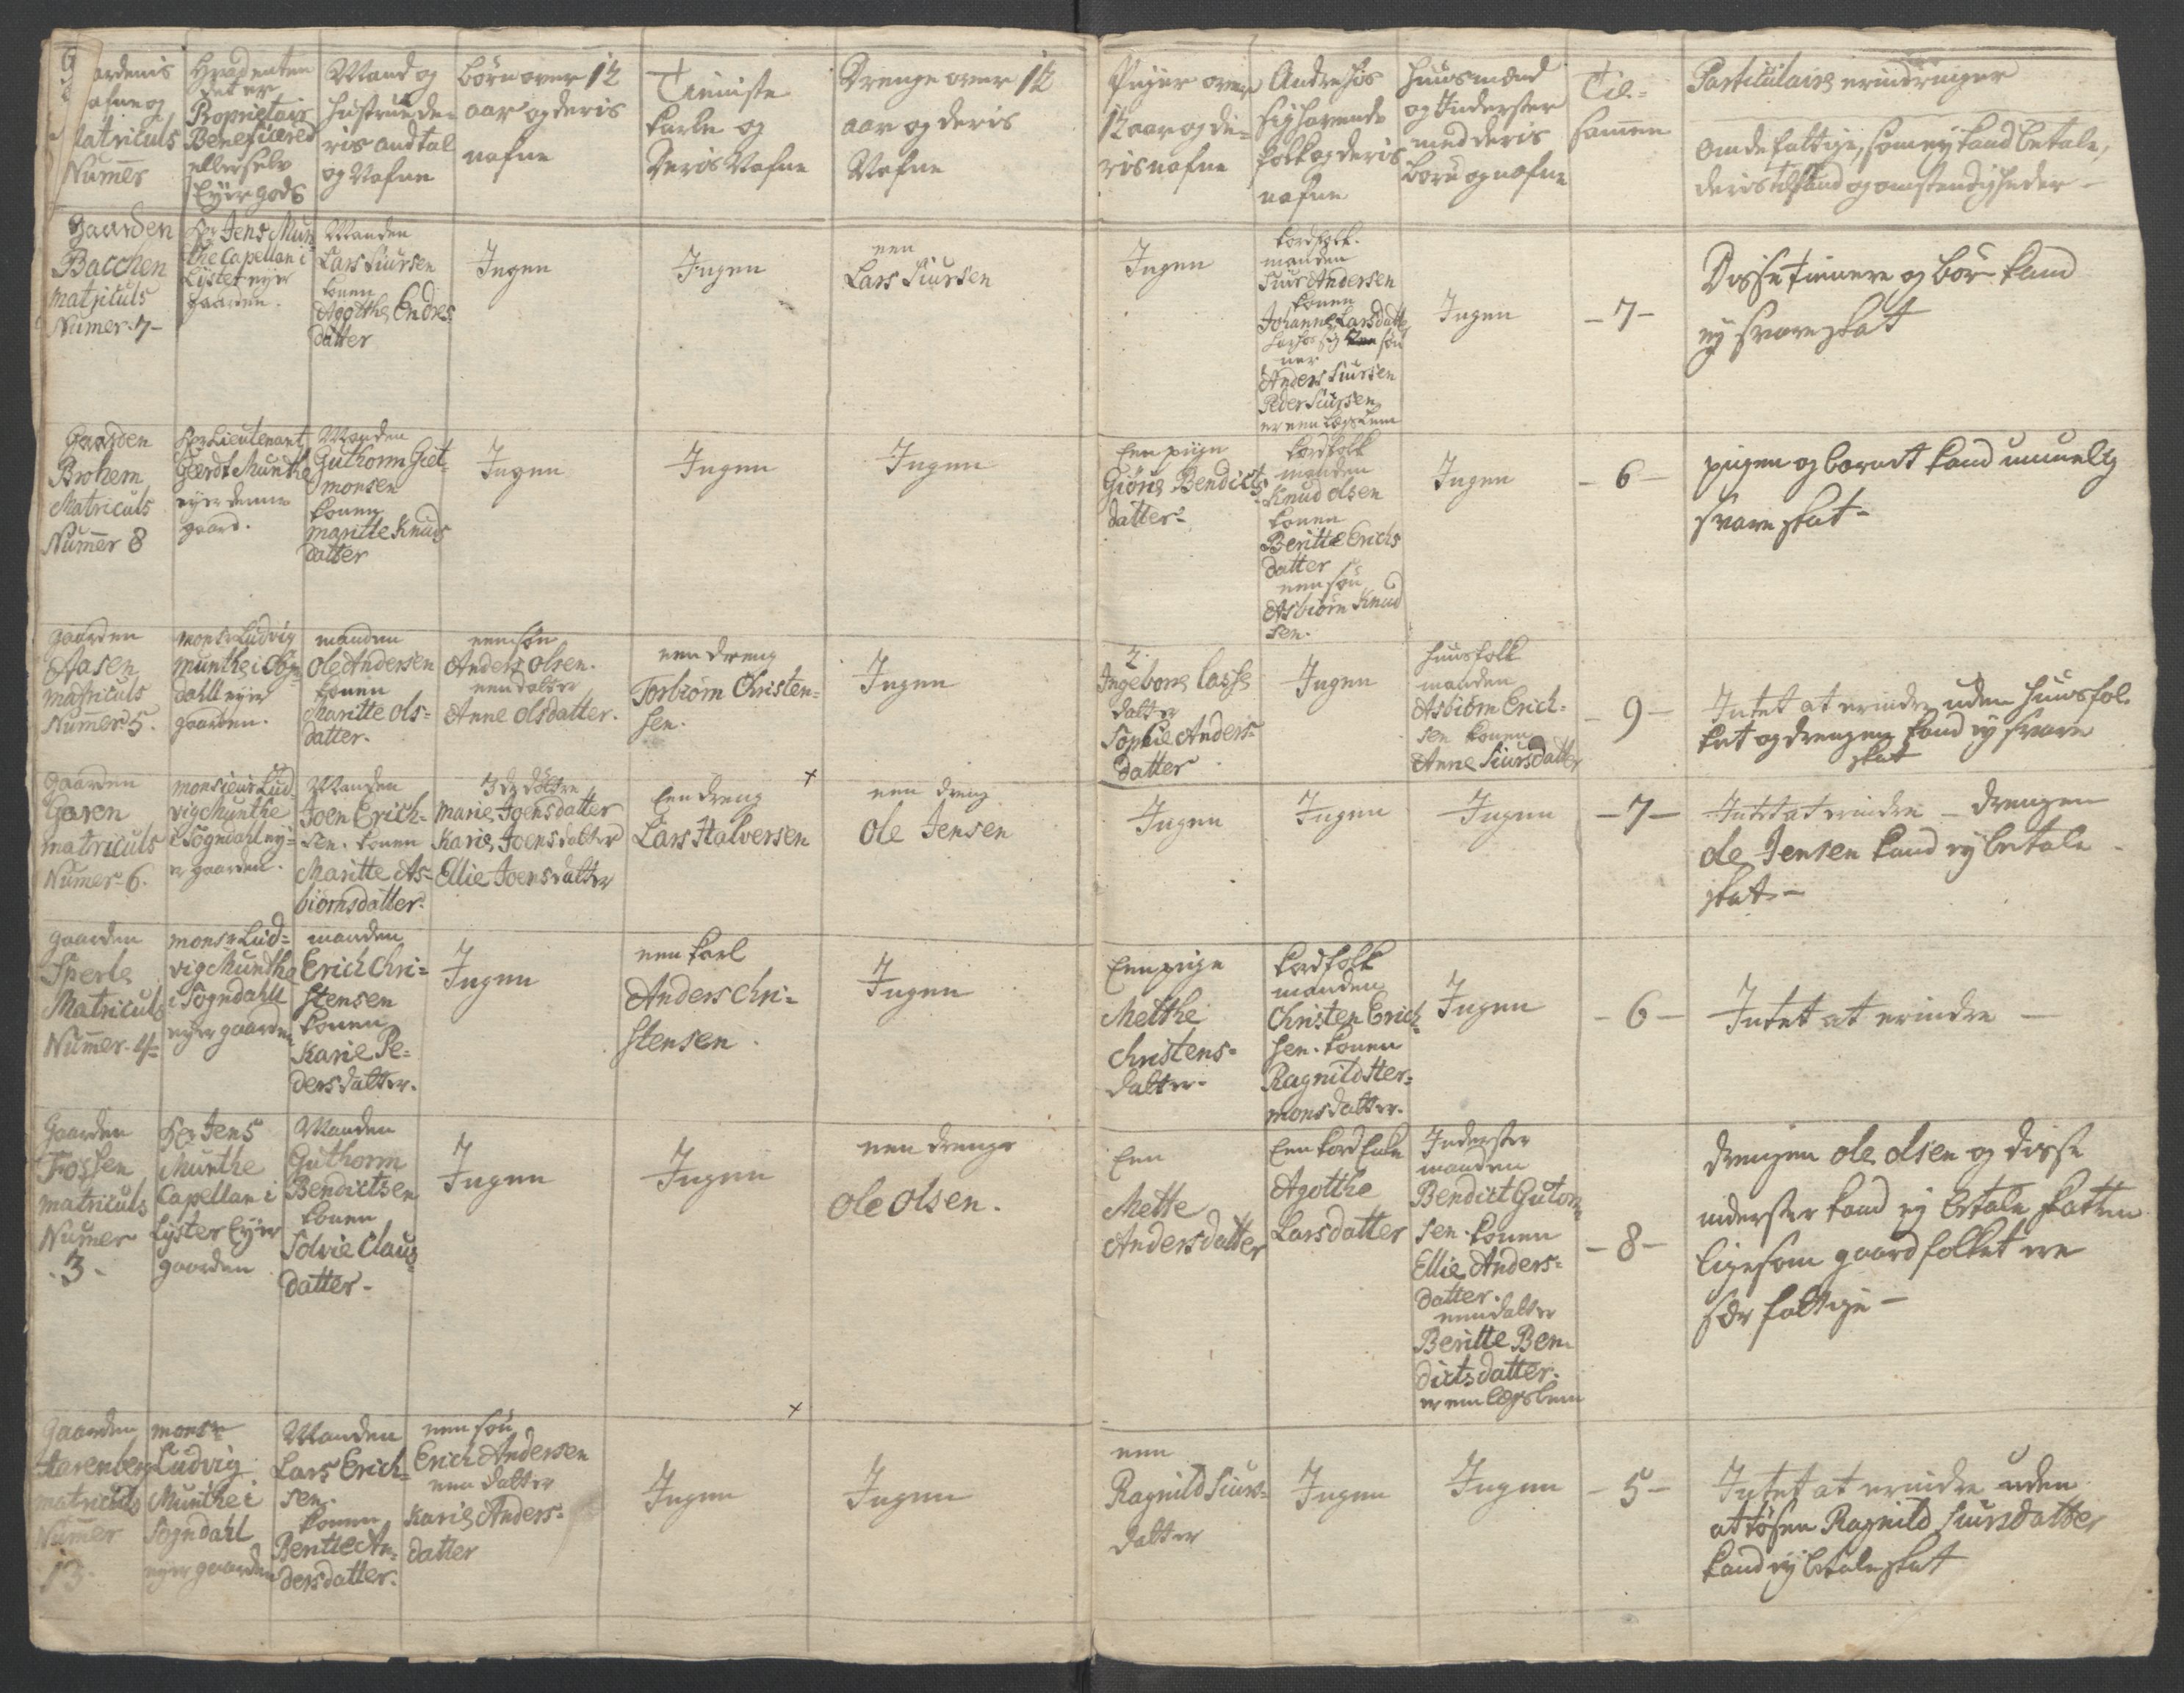 Gaardenis
Nafne og
Matriculs
Numer
Hvad enten
det er
Proprietair
Beneficered
eller selv
Eyer gods
Mand og
hustrue de-
ris andtal
og Nafne
Börn over 12
aar og deris
nafne
Tieniste
karle og
Deris Nafne
Drenge over 12
aar og deris
Nafne
Piiger over
12 aar og de-
ris nafne
Andre hos
sig havende
folk og deris
nafne
Huusmænd
og Inderster
med deris
börn og nafne
Til-
samen
Particulaire erindringer
om de fattige, som ey kand betale,
deris tilstand og omstendigheder -
Gaarden
Bacchen
matriculs
Numer 7-
Hr Jens Mun
the Capellan i
Lyster eyer
gaarden.
Manden
Lars Siursen
konen
Agotthe Endres
datter
Ingen
Ingen
een
Lars Siursen
Ingen
kordfolk.
manden
Siur Andersen
konen
Johanne Larsdatter
har hos sig søn
ner
Anders Siursen
Peder Siursen
er een lægslem
Ingen
- 7 -
Disse tienere og bör kand
ey svare skat
Gaarden
Brohem
Matriculs
Numer 8
Hr Lieutenant
Gerdt Munthe
eyer denne
gaard.
Manden
Guthorm Giet-
monsen
konen
Maritte Knuds
datter
Ingen
Ingen
Ingen
Een piige
Giöric Bendicts
datter-
kordfolk
manden
Knud olsen
konen
Beritte Erichs
datter
een søn
Asbiörn Knud
sen.
Ingen
- 6 -
piigen og barnet kand umuelig
svare skat -
gaarden
Aasen
matriculs
Numer 5.
monsr Ludvig
Munthe i Sogn
dahll eyer
gaarden.
manden
Ole Andersen
konen
Maritte ols-
datter.
een søn
Anders olsen.
een datter
Anne olsdatter.
een dreng
Torbiörn Christen-
sen.
Ingen
2.
Ingebore Lasse
datter
Sophie Anders-
datter
Ingen
huusfolk
manden
Asbiörn Erich-
sen konen
Anne Siursdatter
- 9 -
Intet at erindre uden huusfol-
ket og drengen kand ey svare
skat
gaarden
Garen
matriculs
Numer- 6.
monsieur Lud
vig Munthe
i Sogndahl ey-
er gaarden.
Manden
Joen Erich-
sen. konen
Maritte As-
biörnsdatter.
3 de döttre
Marie Joensdatter
Karie Joensdatter
Ellie Joensdatter
Een dreng
Lars Halversen
een dreng
Ole Jensen
Ingen
Ingen
Ingen
- 7 -
Intet at erindre - drengen
ole Jensen kand ey betale
skat -
gaarden
Sperle
Matriculs
Numer. 4-
monsr Lud-
vig Munthe
i Sogndahll
eyer gaarden
manden
Erich Chri-
stensen
konen
Karie Pe-
dersdatter.
Ingen
een karl
Anders Chri-
stensen.
Ingen
Een piige
Metthe
Christens-
datter-
kordfolk
manden
Christen Erich
sen. konen
Ragnild tter-
monsdatter.
Ingen
- 6 -
Intet at erindre -
Gaarden
Fossen
matriculs
Numer
. 3 -
Hr Jens
Munthe
Capellan i
Lyster Eyer
gaarden
Manden
Guthorm
Bendictsen
konen
Solvie Claus
datter-
Ingen
Ingen
een drenge
ole olsen.
Een
Mette
Andersdatter
Een
Agotthe
Larsdatter
Inderster
manden
Bendict Gutom
sen. konen
Ellie Anders-
datter.
een datter
Beritte Ben
dictsdatter.
er een lægslem
- 8 -
drengen ole olsen og disse
inderster kand ey betale skatten
ligesom gaardfolket ere
fattige -
Gaarden
Aarenberg
matriculs
Numer
13.
monsr
Ludvig
Munthe i
Sogndahl
eyer gaarden
Manden
Lars Erich-
sen.
konen
Bentte An-
dersdatter.
een søn
Erich Andersen
een datter
Karie Anders-
datter
Ingen
Ingen
een
Ragnild Siurs-
datter
Ingen
Ingen
- 5 -
Intet at erindre uden
at tösen Ragnild Siursdatter
kand ey betale skat